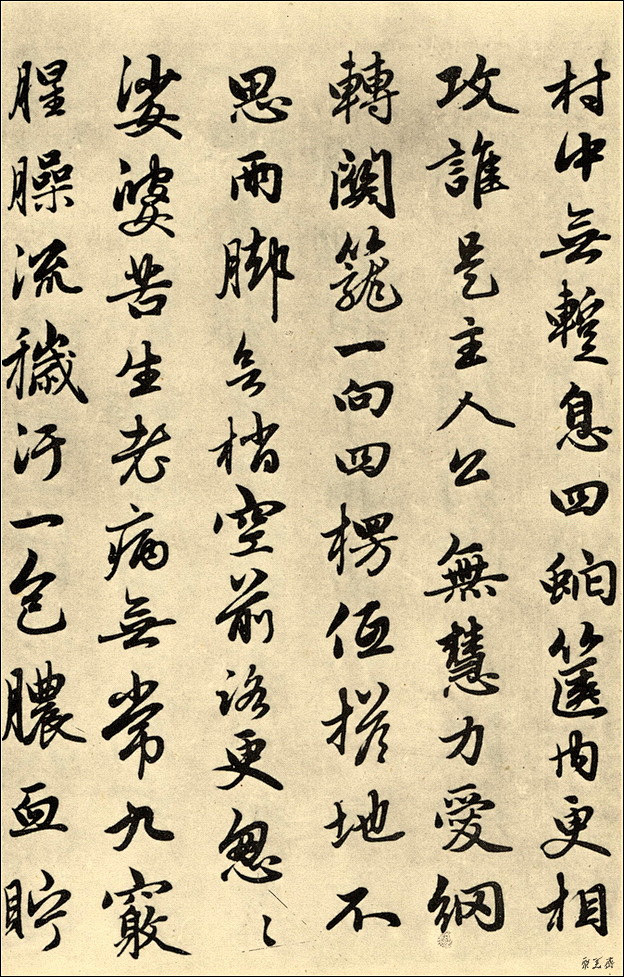 村中無蹔息四蛇篋内更相
攻誰是主人公無慧力愛網
轉關籠一向四楞伍搭地不
思兩脚無梢空前路更怱〻
娑婆苦生老病無常九竅
腥臊流穢汙一包膿血貯